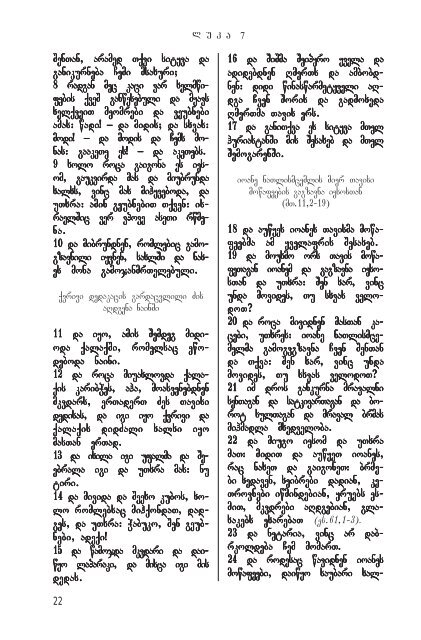 ლუკა 7
შენთან, არამედ თქვი სიტყვა და
განიკურნება ჩემი მსახური;
8 რადგან მეც კაცი ვარ ხელმწი-
ფების ქვეშ განწესებული და მყავს
ხელქვეით მეომრები და ვეუბნები
ამას: წადი! – და მიდის; და სხვას:
მოდი! – და მოდის და ჩემს მო-
ნას: გააკეთე ეს! – და აკეთებს.
9 ხოლო როცა გაიგონა ეს იესო-
მ, გაუკვირდა მას და მიუბრუნდა
ხალხს, ვინც მას მიჰყვებოდა, და
უთხრა: ამინ გეუბნებით თქვენ: ის-
რაელშიც ვერ ვპოვე ასეთი რწმე-
ნა.
10 და მიბრუნდნენ, რომლებიც გამო-
გზავნილი იყვნენ, სახლში და ნახ-
ეს მონა გამოჯანმრთელებული.
ქვრივი დედაკაცის გარდაცვლილი ძის
აღდგენა ნაინში
11 და იყო, ამის შემდეგ მიდი-
ოდა ქალაქში, რომელსაც ეწო-
დებოდა ნაინი.
12 და როცა მიუახლოვდა ქალა-
ქის კარიბჭეს, აჰა, მოასვენებდნენ
მკვდარს, ერთადერთ ძეს თავისი
დედისას, და იგი იყო ქვრივი და
ქალაქის დიდძალი ხალხი იყო
მასთან ერთად.
13 და იხილა იგი უფალმა და შე-
ებრალა იგი და უთხრა მას: ნუ
ტირი.
14 და მივიდა და შეეხო კუბოს, ხო-
ლო რომლებსაც მიჰქონდათ, დად-
გეს, და უთხრა: ჭაბუკო, შენ გეუბ-
ნები, ადექი!
15 და წამოჯდა მკვდარი და დაი-
წყო ლაპარაკი, და მისცა იგი მის
დედას.
16 და შიშმა შეიპყრო ყველა და
ადიდებდნენ ღმერთს და ამბობდ-
ნენ: დიდი წინასწარმეტყველი აღ-
დგა ჩვენ შორის და გადმოხედა
ღმერთმა თავის ერს.
17 და განითქვა ეს სიტყვა მთელ
ჰურიასტანში მის შესახებ და მთელ
შემოგარენში.
იოანე ნათლისმცემლის მიერ თავისი
მოწაფეების გაგზავნა იესოსთან
(მთ.11,2-19)
18 და აუწყეს იოანეს თავისმა მოწა-
ფეებმა ამ ყველაფრის შესახებ.
19 და მოუხმო ორს თავის მოწა-
ფეთაგან იოანემ და გაგზავნა იესო-
სთან და უთხრა: შენ ხარ, ვინც
უნდა მოვიდეს, თუ სხვას ველო-
დოთ?
20 და როცა მივიდნენ მასთან კა-
ცები, უთხრეს: იოანე ნათლისმცე-
მელმა გამოგვგზავნა ჩვენ შენთან
და თქვა: შენ ხარ, ვინც უნდა
მოვიდეს, თუ სხვას ველოდოთ?
21 იმ დროს განკურნა მრავალნი
სენთაგან და სატკივართაგან და ბო-
როტ სულთაგან და მრავალ ბრმას
მიჰმადლა მხედველობა.
22 და მიუგო იესომ და უთხრა
მათ: მიდით და აუწყეთ იოანეს,
რაც ნახეთ და გაიგონეთ: ბრმე-
ბი ხედავენ, ხეიბრები დადიან, კე-
თროვნები იწმინდებიან, ყრუებს ეს-
მით, მკვდრები აღდგებიან, გლა-
ხაკებს ეხარებათ (ეს.61,1-3).
23 და ნეტარია, ვინც არ დაბ-
რკოლდება ჩემ მიმართ.
24 და როდესაც წავიდნენ იოანეს
მოწაფეები, დაიწყო საუბარი ხალ-
22